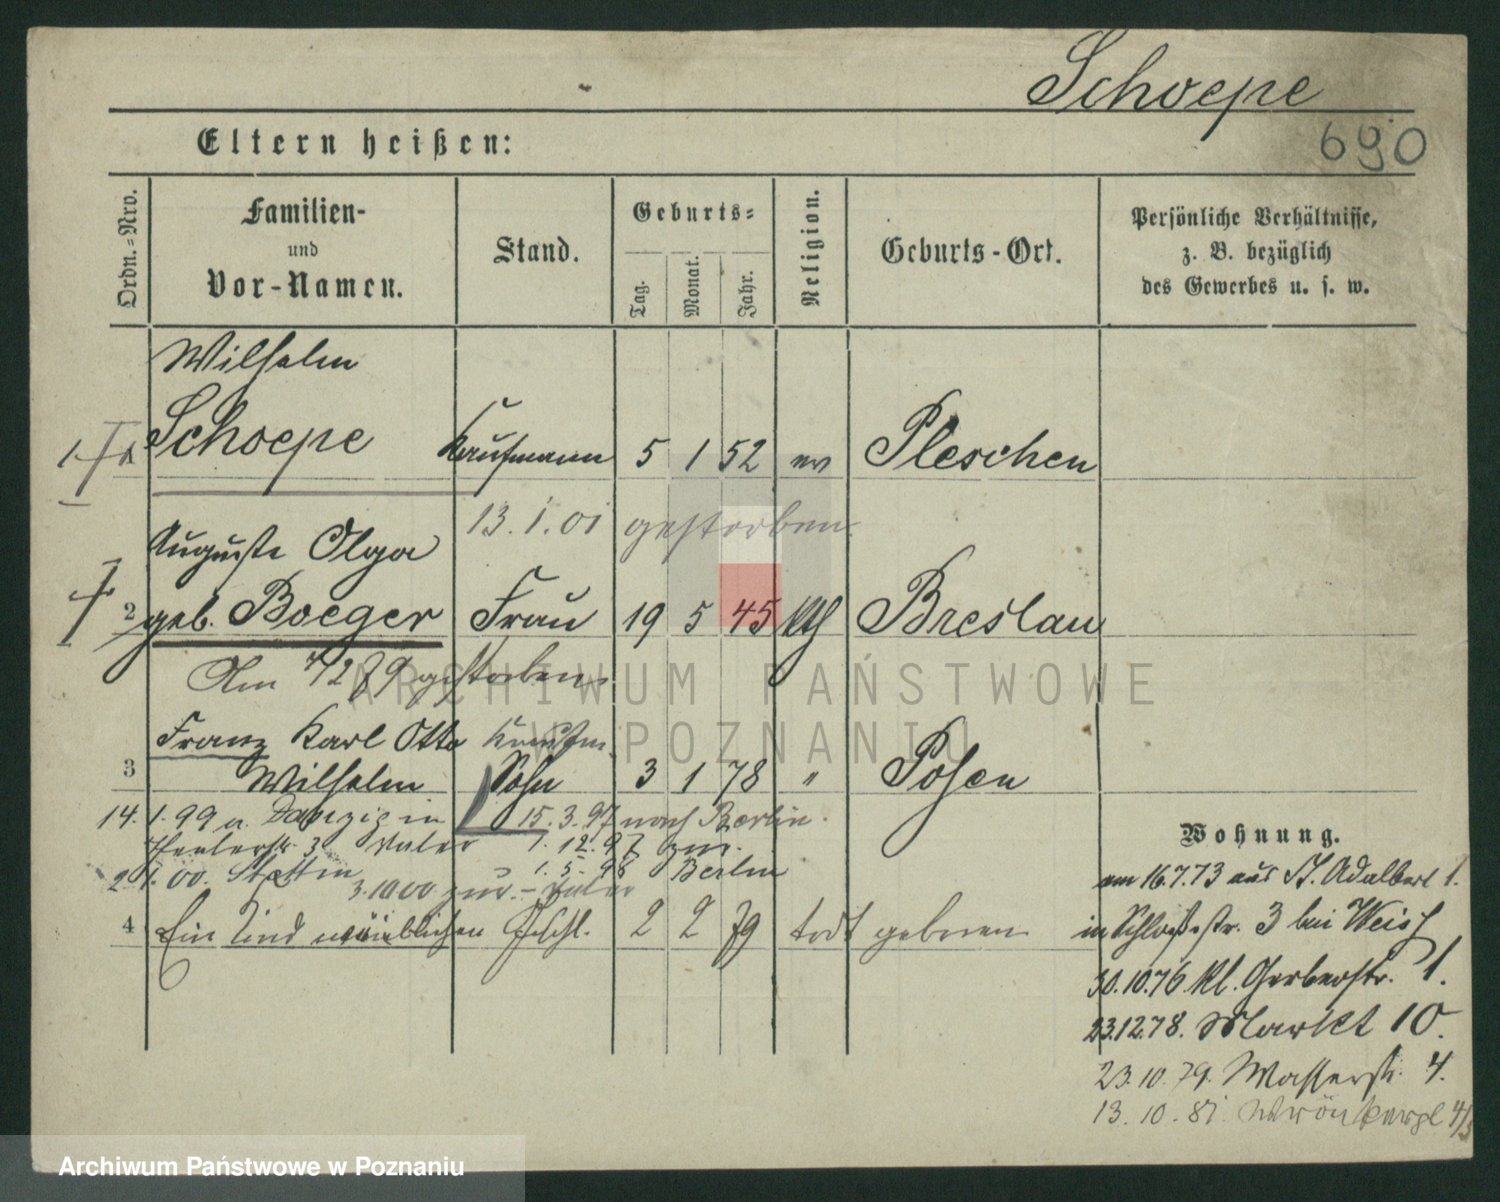 Schoepe
690
Eltern heißen:
Ordn.=Nro.
Familien-
und
Vor-Namen.
Stand.
Geburts=
Tag.
Monat.
Jahr.
Religion.
Geburts-Ort.
Persönliche Verhältnisse,
z. B. bezüglich
des Gewerbes u. s. w.
Wilhelm
1 Schoepe Kaufmann 5 1 52 ev Pleschen
13.1.01 gestorben
Auguste Olga
2 geb. Boeger Frau 19 5 45 kth Breslau
Am 4/2 89 gestorben
Franz Karl Otto Kaufm.
3 Wilhelm Sohn 3 1 78 " Posen
14. 1. 99 a. Danzig in 15. 3. 97 nach Berlin.
3 Vater 1. 12. 97 zur.
2 1. 00. Stettin 1. 5. 98 Berlin
3.10 00 zur. - Vater
4 Ein Kind weiblichen Geschl. 2 2 79 todt geboren
Wohnung.
am 16.7.73 aus St. Adalbert 1.
in Schloßstr. 3 bei
30.10.76 kl. Gerberstr. 1.
23.12.78. Markt 10.
23.10.79. Wasserstr. 4.
13.10.81. 4/5
ARCHIWUM PAŃSTWOWE
W POZNANIU
Archiwum Państwowe w Poznaniu